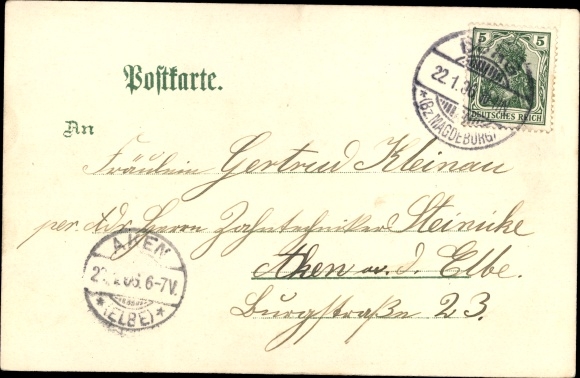 5 5
DEUTSCHES REICH
BURG
22.1.06
*(BZ. MAGDEBURG)
Postkarte.
An
Fräulein Gertrud Kleinau
per Adr. Herrn Zahntechniker Steinicke
Aken a. d. Elbe.
Burgstraße 23.
AKEN
.06. 6-7V.
*(ELBE)*